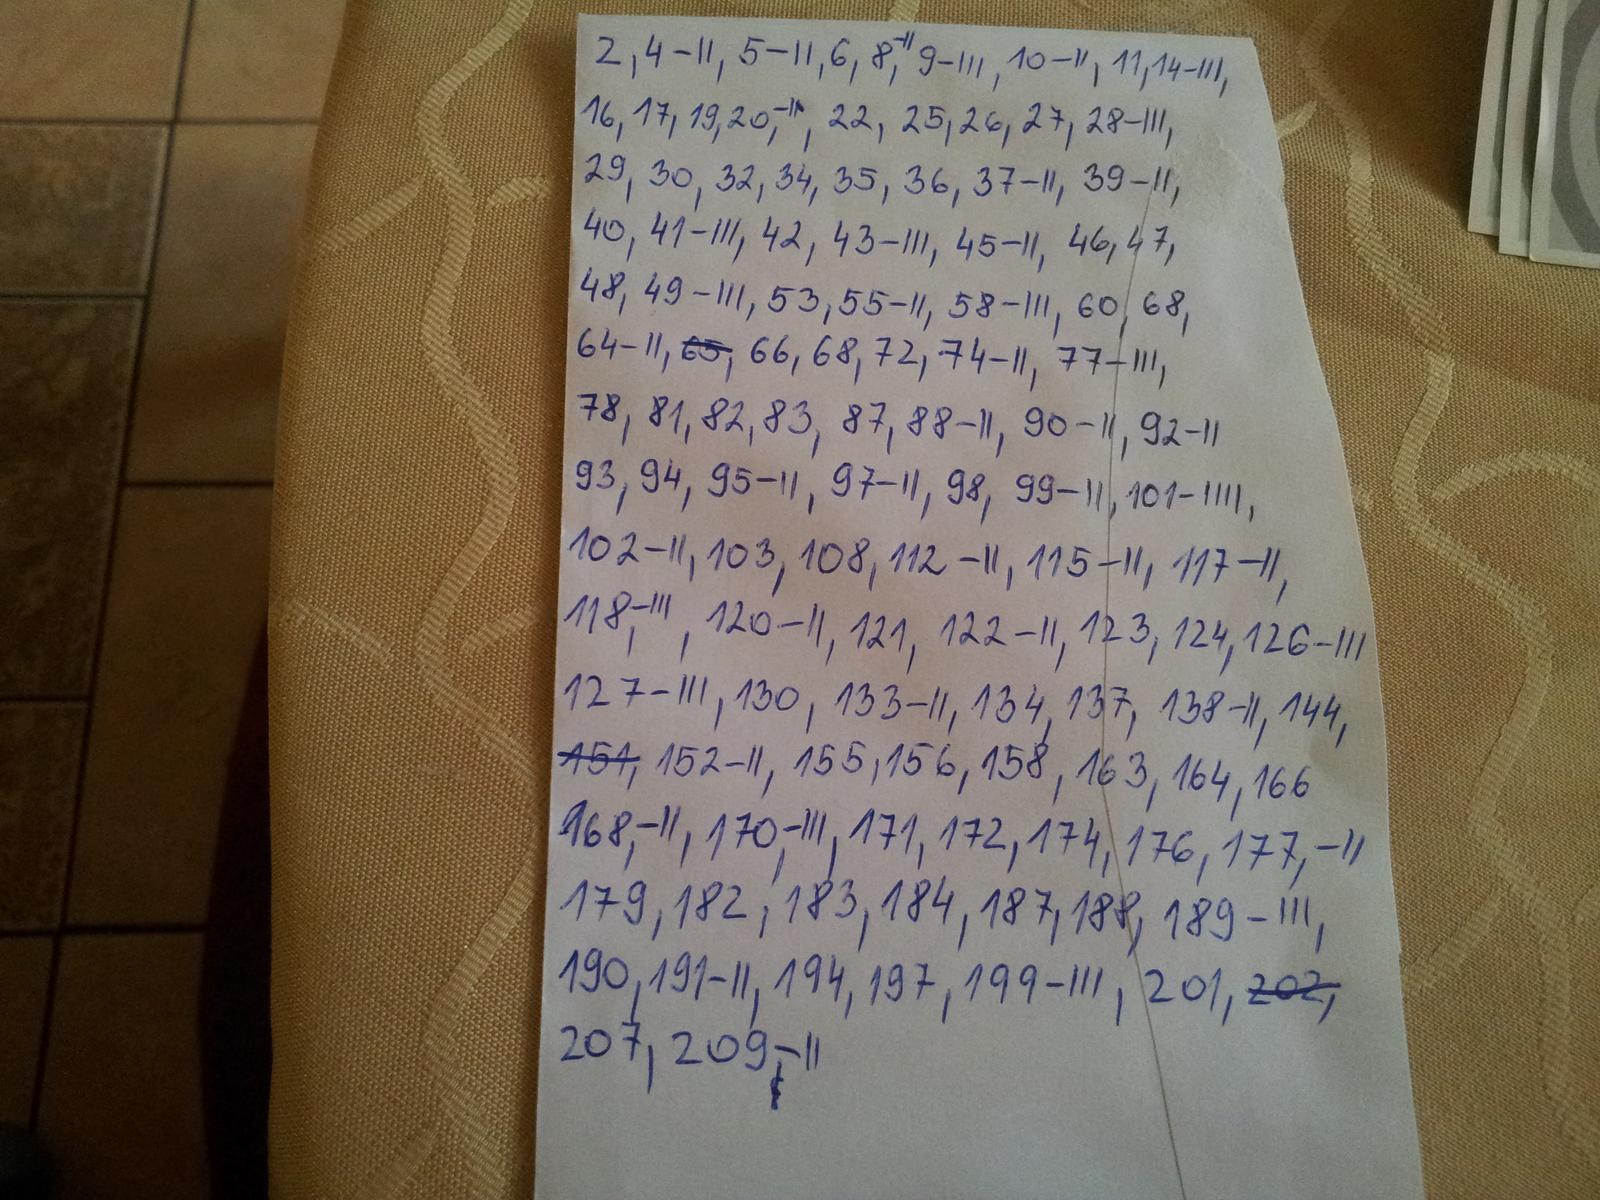 2, 4-II, 5-II, 6, 8,-II 9-III, 10-II, 11, 14-III,
16, 17, 19, 20,-II, 22, 25, 26, 27, 28-III,
29, 30, 32, 34, 35, 36, 37-II, 39-II,
40, 41-III, 42, 43-III, 45-II, 46, 47,
48, 49-III, 53, 55-II, 58-III, 60, 68,
64-II, 65, 66, 68, 72, 74-II, 77-III,
78, 81, 82, 83, 87, 88-II, 90-II, 92-II
93, 94, 95-II, 97-II, 98, 99-II, 101-IIII,
102-II, 103, 108, 112-II, 115-II, 117-II,
118,-III, 120-II, 121, 122-II, 123, 124, 126-III
127-III, 130, 133-II, 134, 137, 138-II, 144,
151, 152-II, 155, 156, 158, 163, 164, 166
168,-II, 170,-III, 171, 172, 174, 176, 177,-II
179, 182, 183, 184, 187, 188, 189-III,
190, 191-II, 194, 197, 199-III, 201, 202,
207, 209,-II